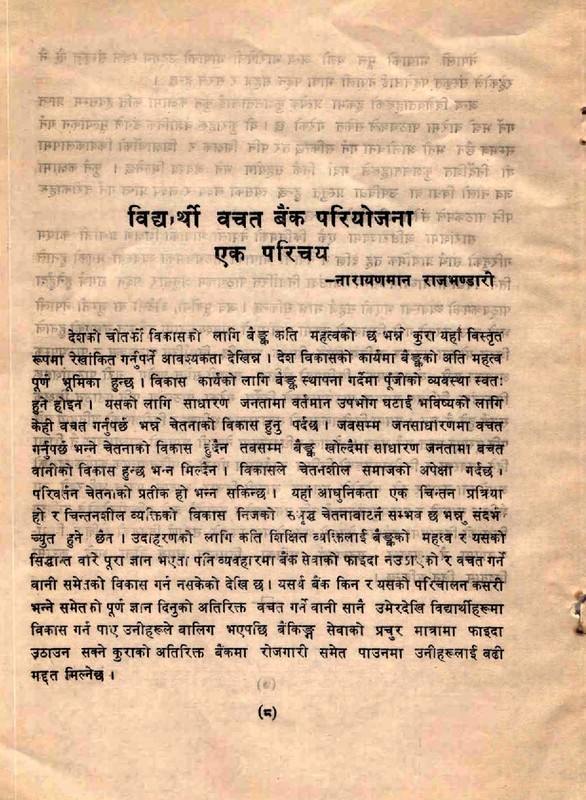 विद्यार्थी वचत बैंक परियोजना
एक परिचय
–नारायणमान राजभण्डारी
देशको चौतर्फी विकासको लागि बैङ्क कति महत्वको छ भन्ने कुरा यहाँ विस्तृत
रूपमा रेखांकित गर्नुपर्ने आवश्यकता देखिन्न । देश विकासको कार्यमा बैङ्कको अति महत्व
पूर्ण भूमिका हुन्छ । विकास कार्यको लागि बैङ्क स्थापना गर्दैमा पूंजीको व्यवस्था स्वतः
हुने होइन । यसको लागि साधारण जनतामा वर्तमान उपभोग घटाई भविष्यको लागि
केही वचत गर्नुपर्छ भन्ने चेतनाको विकास हुनु पर्दछ । जवसम्म जनसाधारणमा वचत
गर्नुपर्छ भन्ने चेतनाको विकास हुँदैन तवसम्म बैङ्क खोल्दैमा साधारण जनतामा बचत
वानीको विकास हुन्छ भन्न मिल्दैन । विकासले चेतनशील समाजको अपेक्षा गर्दछ ।
परिवर्तन चेतनाको प्रतीक हो भन्न सकिन्छ । यहाँ आधुनिकता एक चिन्तन प्रक्रिया
हो र चिन्तनशील व्यक्तिको विकास निजको समृद्ध चेतनावाटनै सम्भव छ भन्नु संदर्भ
च्युत हुने छैन । उदाहरणको लागि कति शिक्षित व्यक्तिलाई बैङ्कको महत्व र यसको
सिद्धान्त वारे पूरा ज्ञान भएता पनि व्यवहारमा बैंक सेवाको फाइदा नउठाएको र वचत गर्ने
वानी समेतको विकास गर्न नसकेको देखि छ । यसर्थ बैंक किन र यसको परिचालन कसरी
भन्ने समेतको पूर्ण ज्ञान दिनुको अतिरिक्त वचत गर्ने वानी सानै उमेरदेखि विद्यार्थीहरूमा
विकास गर्न पाए उनीहरूले वालिग भएपछि बैंकिङ्ग सेवाको प्रचुर मात्रामा फाइदा
उठाउन सक्ने कुराको अतिरिक्त बैंकमा रोजगारी समेत पाउनमा उनीहरूलाई वढी
मद्दत मिल्नेछ ।
(८)